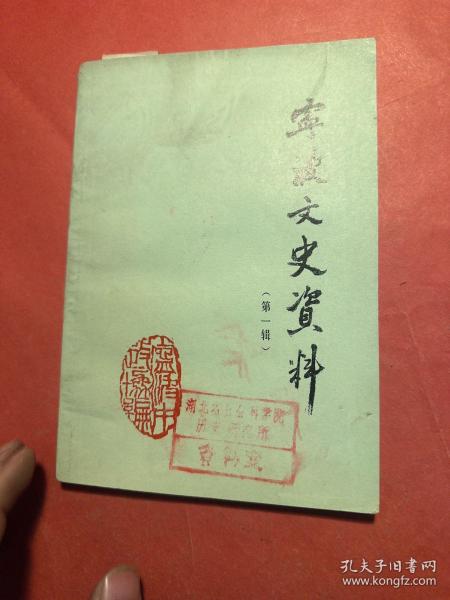 寧波文史資料
（第一辑）
湖北省社会科学院
历史研究所
資料室
孔夫子旧书网
www.kongfz.com